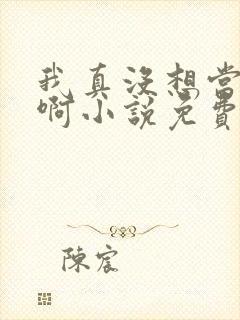 我真没想当
啊小說免費
陳宸